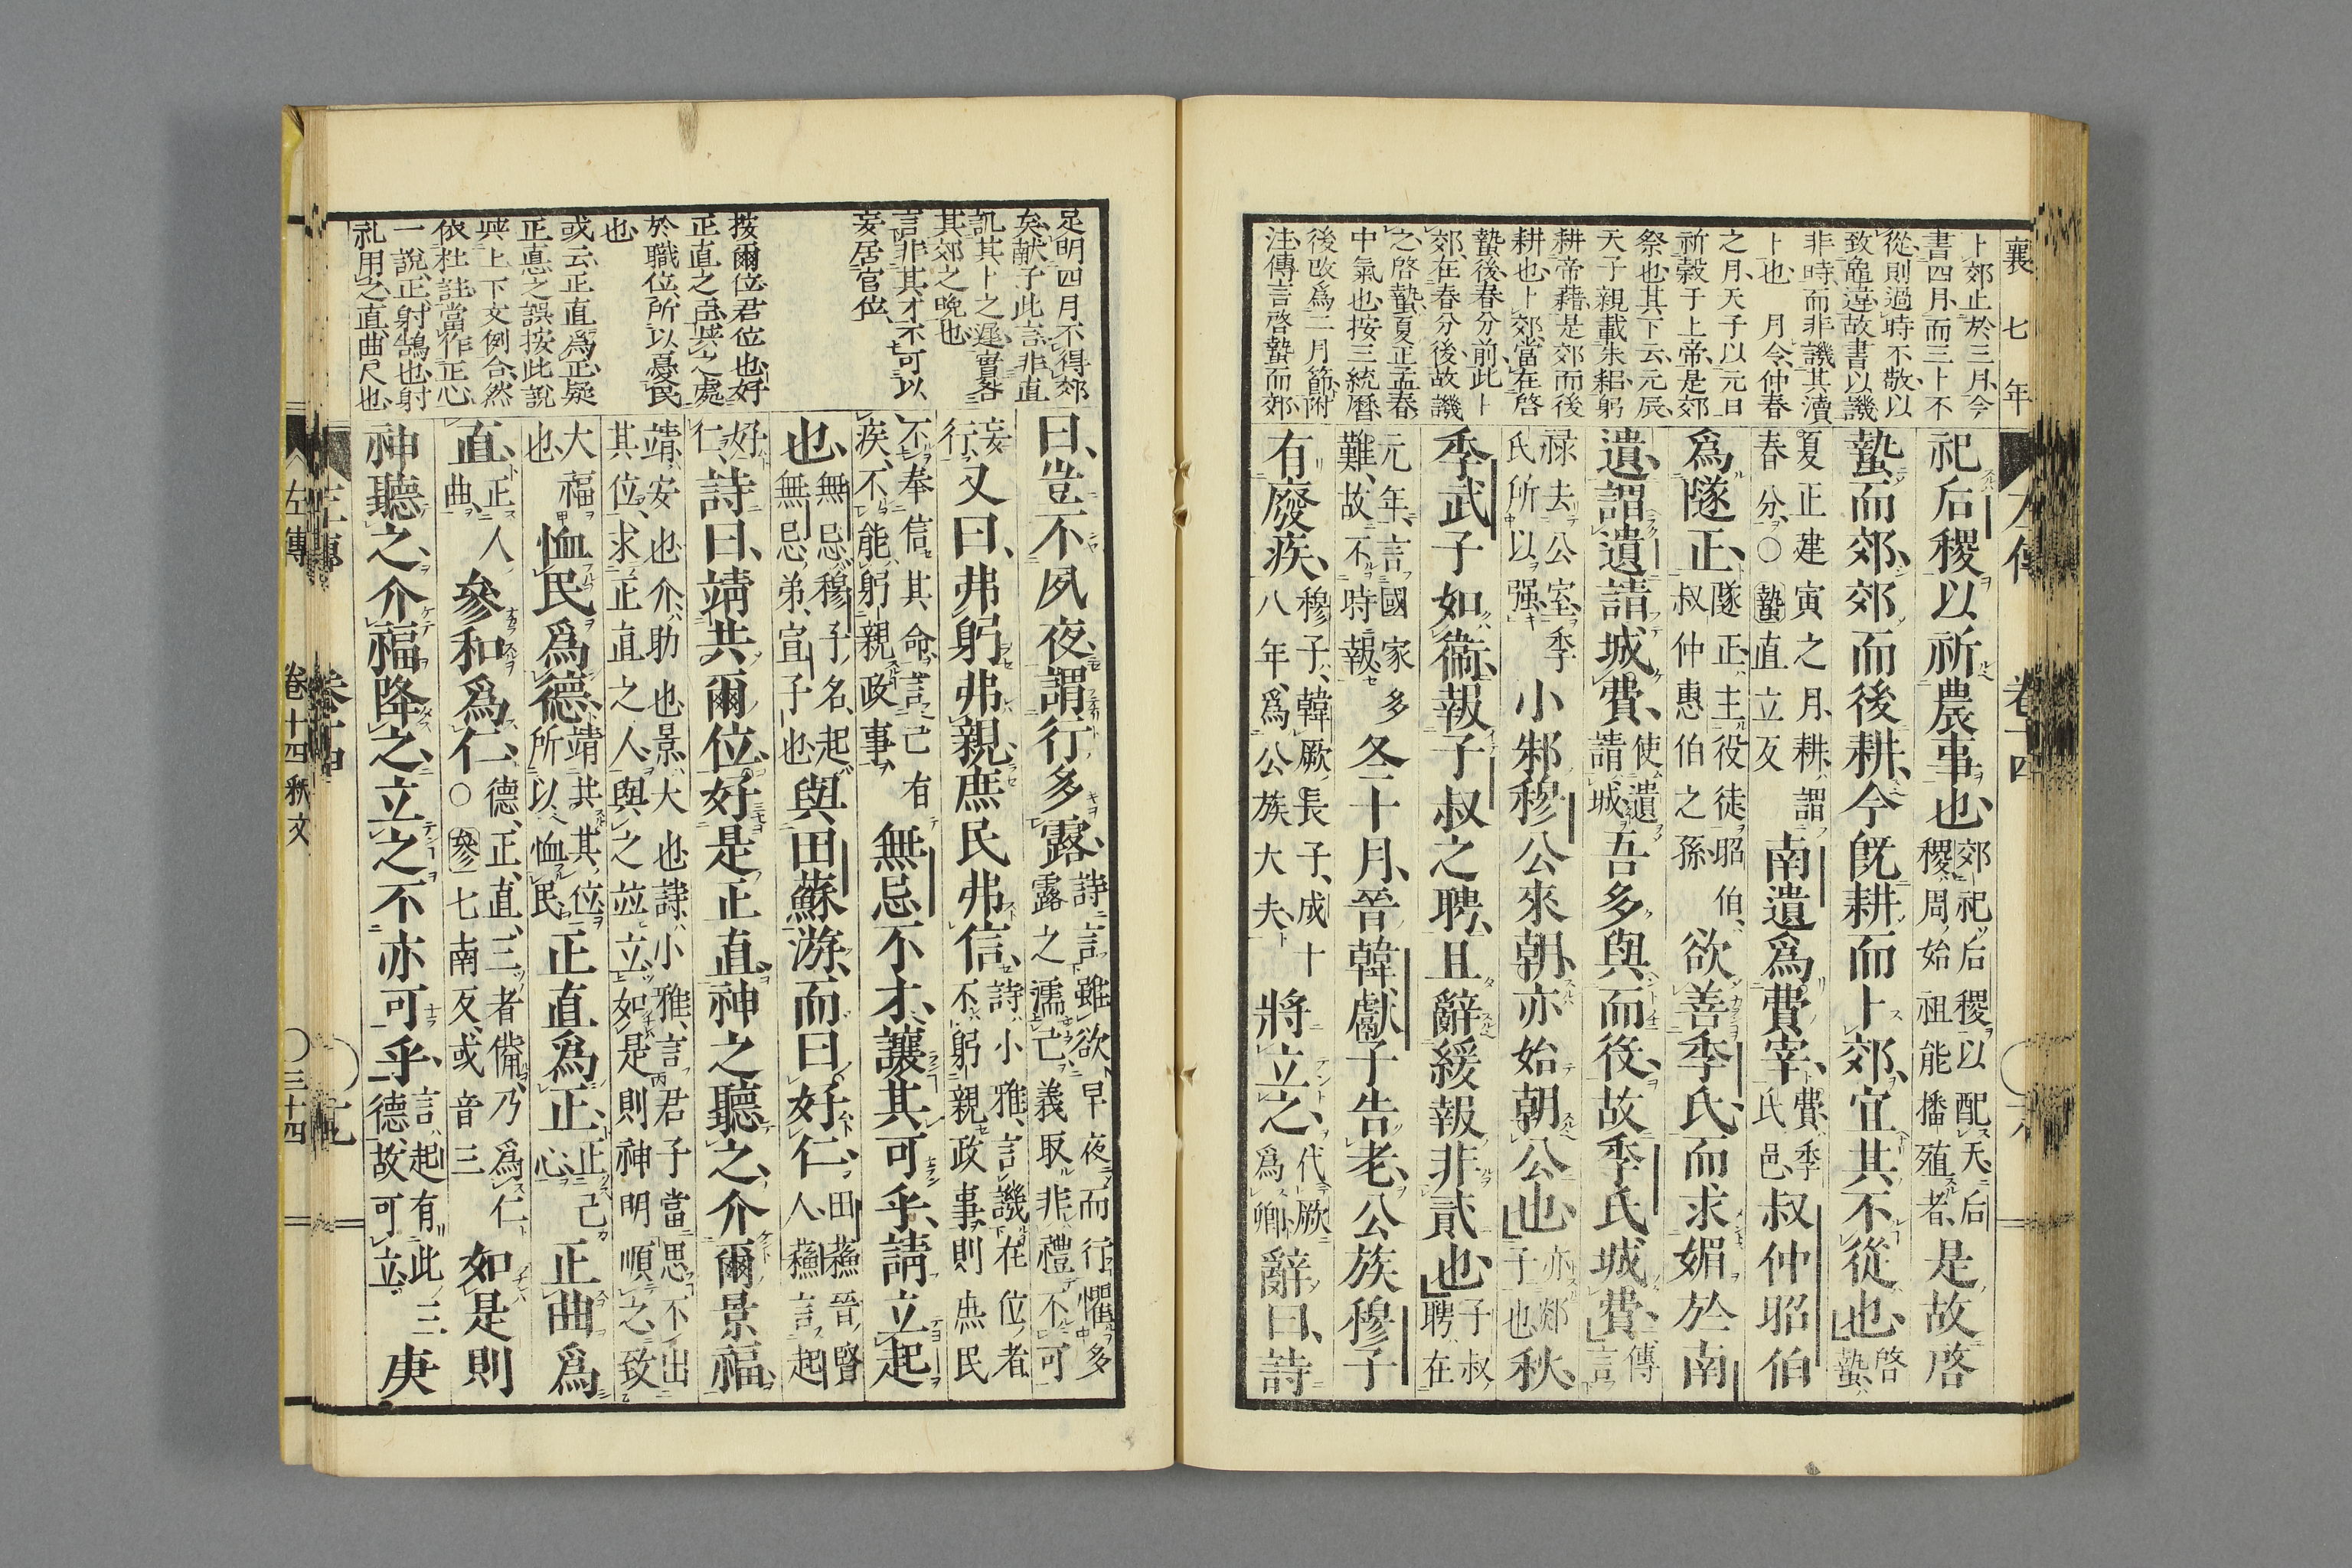 襄七年
左傳 卷十四
卜郊止於三月今
書四月而三卜不
從則過時不敬以
致龜違故書以譏
非時而非譏其瀆
卜也 月令仲春
之月天子以元日
祈穀于上帝是郊
祭也其下云元辰
天子親載耒耜躬
耕帝藉是郊而後
耕也卜郊當在啓
蟄後春分前此卜
郊在春分後故譏
之啓蟄夏正孟春
中氣也按三統曆
後改爲二月節附
注傳言啓蟄而郊
祀后稷以祈農事也郊祀后稷以配天后稷周始祖能播殖者是故啓
蟄而郊郊而後耕今既耕而卜郊宜其不從也啓蟄
夏正建寅之月耕謂春分○蟄直立反南遺爲費宰費季氏邑叔仲昭伯
爲隧正隧正主役徒昭伯叔仲惠伯之孫欲善季氏而求媚於南
遺謂遺請城費使遺請城吾多與而役故季氏城費傳言
祿去公室季氏所以强小邾穆公來朝亦始朝公也亦郯子也秋
季武子如衞報子叔之聘且辭緩報非貳也子叔聘在
元年言國家多難故不時報冬十月晉韓獻子告老公族穆子
有廢疾穆子韓厥長子成十八年爲公族大夫將立之代厥爲卿辭曰詩
足明四月不得郊
矣獻子此言非直
譏其卜之遲實咎
其郊之晩也
言非其才不可以
妄居官位
按爾位君位也好
正直之臣共之處
於職位所以憂民
也
或云正直爲正疑
正悳之誤按此說
與上下文例合然
依杜註當作正心
一說正射鵠也射
礼用之直曲尺也
曰豈不夙夜謂行多露詩言雖欲早夜而行懼多露之濡己義取非禮不可
妄行又曰弗躬弗親庶民弗信詩小雅言譏在位者不躬親政事則庶民
不奉信其命言己有疾不能躬親政事無忌不才讓其可乎請立起
也無忌穆子名起無忌弟宣子也與田蘇游而曰好仁田蘇晉賢人蘇言起
好仁詩曰靖共爾位好是正直神之聽之介爾景福
靖安也介助也景大也詩小雅言君子當思不出其位求正直之人與之竝立如是則神明順之致
大福也恤民爲德靖共其位所以恤民正直爲正正己心正曲爲
直正人曲參和爲仁德正直三者備乃爲仁○參七南反或音三如是則
神聽之介福降之立之不亦可乎言起有此三德故可立庚
左傳 卷十四
左傳 卷十四 秋文 〇三十四